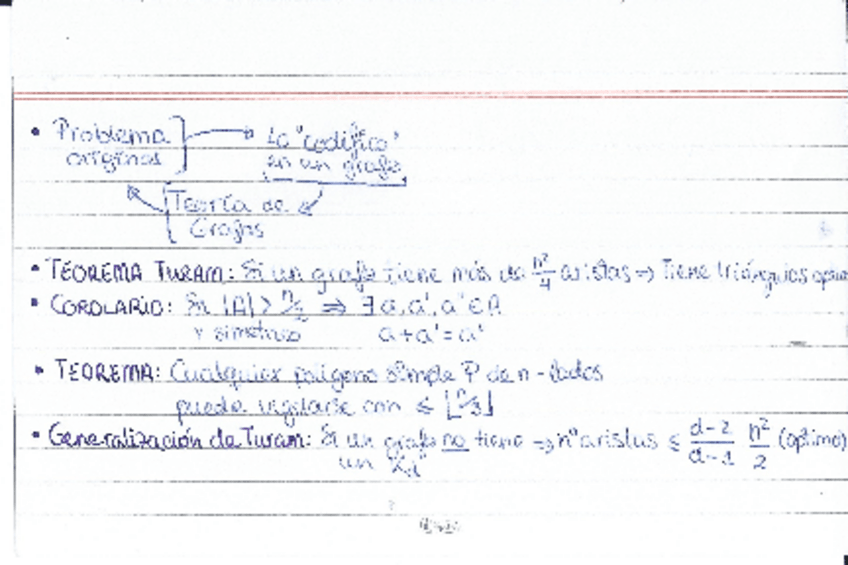 • Problema → Lo "codifico"
original en un grafo
Teoría de
Grafos
• TEOREMA TURAM: Si un grafo tiene más de n²/4 aristas ⇒ Tiene triángulos
• COROLARIO: Si |A| > n/2 ⇒ ∃ a, a', a'' ∈ A
y simétrico a + a' = a''
• TEOREMA: Cualquier polígono simple P de n-lados
puede vigilarse con ≤ ⌊n/3⌋
• Generalización de Turam: Si un grafo no tiene ⇒ nº aristas ≤ d-2/d-1 n²/2 (optimo)
un Kd